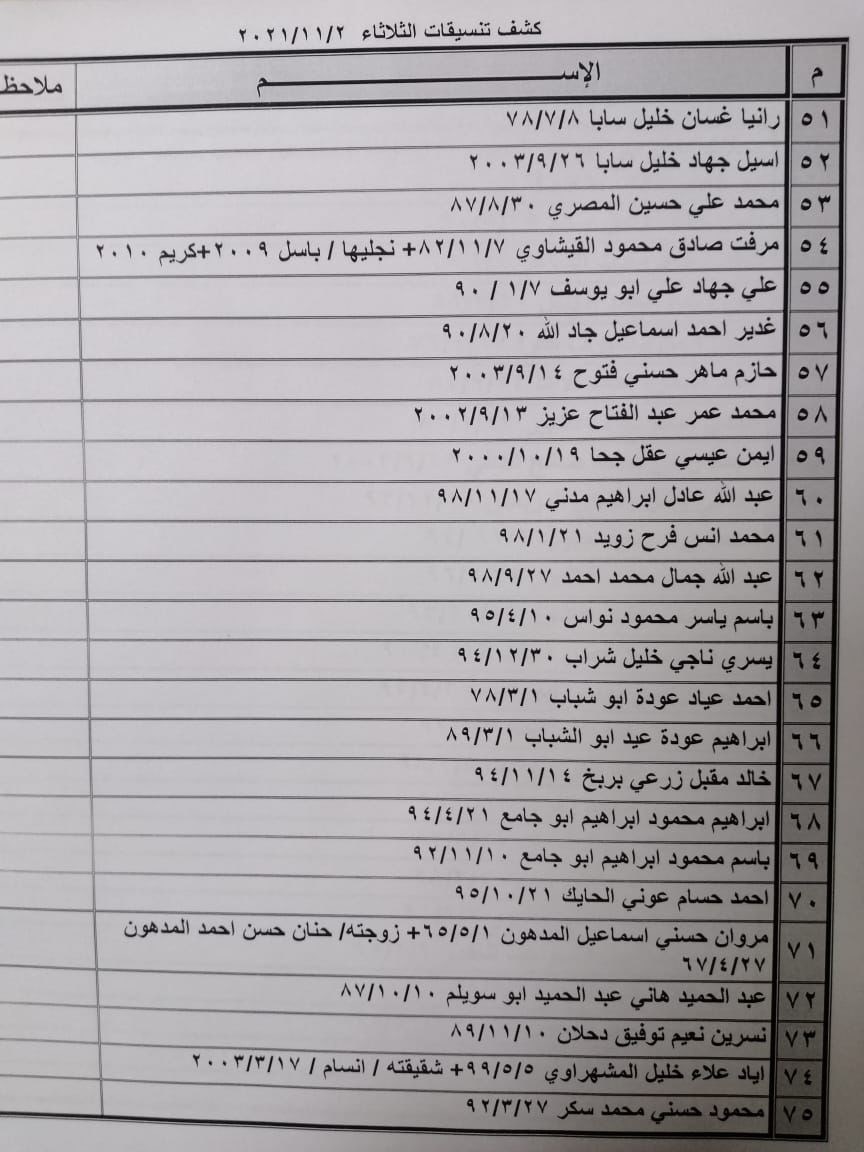 كشف تنسيقات الثلاثاء ٢٠٢١/١١/٢
م الإســــــــم ملاحظ
٥١ رانيا غسان خليل سابا ٧٨/٧/٨
٥٢ اسيل جهاد خليل سابا ٢٠٠٣/٩/٢٦
٥٣ محمد علي حسين المصري ٨٧/٨/٣٠
٥٤ مرفت صادق محمود القيشاوي ٨٢/١١/٧+ نجليها / باسل ٢٠٠٩+كريم ٢٠١٠
٥٥ علي جهاد علي ابو يوسف ١/٧ / ٩٠
٥٦ غدير احمد اسماعيل جاد الله ٩٠/٨/٢٠
٥٧ حازم ماهر حسني فتوح ٢٠٠٣/٩/١٤
٥٨ محمد عمر عبد الفتاح عزيز ٢٠٠٢/٩/١٣
٥٩ ايمن عيسي عقل جحا ٢٠٠٠/١٠/١٩
٦٠ عبد الله عادل ابراهيم مدني ٩٨/١١/١٧
٦١ محمد انس فرح زويد ٩٨/١/٢١
٦٢ عبد الله جمال محمد احمد ٩٨/٩/٢٧
٦٣ باسم ياسر محمود نواس ٩٥/٤/١٠
٦٤ يسري ناجي خليل شراب ٩٤/١٢/٣٠
٦٥ احمد عياد عودة ابو شباب ٧٨/٣/١
٦٦ ابراهيم عودة عيد ابو الشباب ٨٩/٣/١
٦٧ خالد مقبل زرعي بربخ ٩٤/١١/١٤
٦٨ ابراهيم محمود ابراهيم ابو جامع ٩٤/٤/٢١
٦٩ باسم محمود ابراهيم ابو جامع ٩٢/١١/١٠
٧٠ احمد حسام عوني الحايك ٩٥/١٠/٢١
٧١ مروان حسني اسماعيل المدهون ٦٥/٥/١+ زوجته/ حنان حسن احمد المدهون
٦٧/٤/٢٧
٧٢ عبد الحميد هاني عبد الحميد ابو سويلم ٨٧/١٠/١٠
٧٣ نسرين نعيم توفيق دحلان ٨٩/١١/١٠
٧٤ اياد علاء خليل المشهراوي ٩٩/٥/٥+ شقيقته / انسام / ٢٠٠٣/٣/١٧
٧٥ محمود حسني محمد سكر ٩٢/٣/٢٧